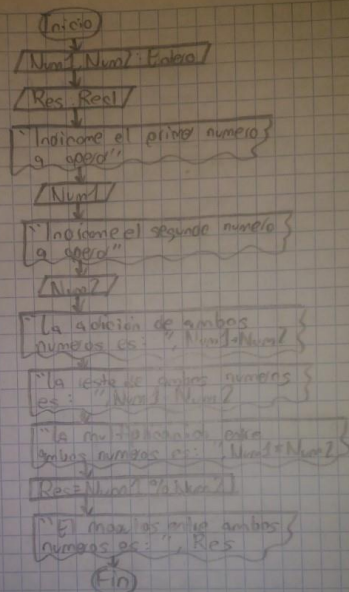 Inicio
Num1, Num2: Entero
Res: Real
"Indicame el primer numero
a operar"
Num1
"Indicame el segundo numero
a operar"
Num2
"La adición de ambos
numeros es: ", Num1+Num2
"La resta de ambos numeros
es: ", Num1 Num2
"La multiplicación entre
ambos numeros es: ", Num1*Num2
Res=Num1 % Num2
"El entre ambos
numeros es: ", Res
Fin